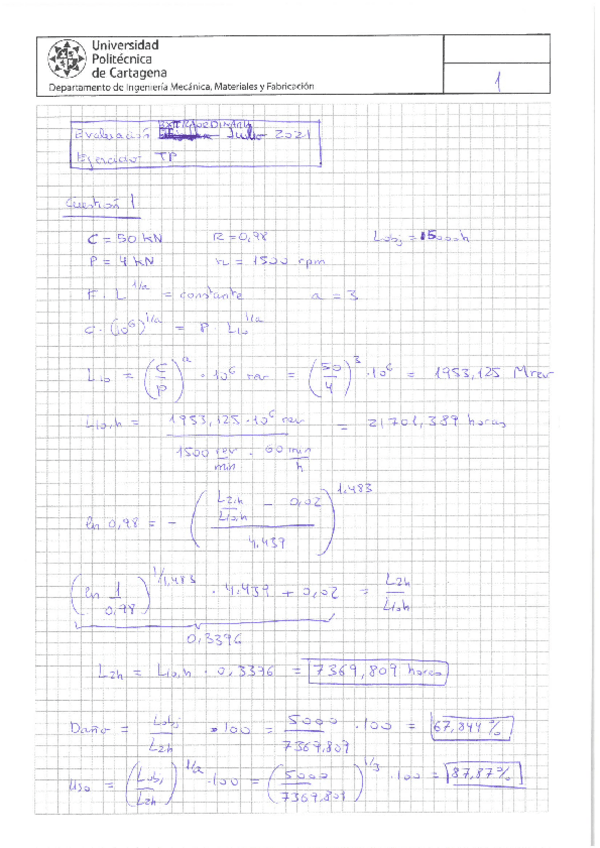 Universidad
Politécnica
de Cartagena
Departamento de Ingeniería Mecánica, Materiales y Fabricación
1
Evaluación EXTRAORDINARIA Julio 2021
Ejercicio TP
Cuestión 1
C = 50 kN R = 0,98 Lobj = 15000h
P = 4 kN n = 1500 rpm
F · L^1/a = constante a = 3
C · (10^6)^1/a = P · L10^1/a
L10 = (C/P)^a · 10^6 rev = (50/4)^3 · 10^6 = 1953,125 Mrev
L10,h = 1953,125 · 10^6 rev / 1500 rev/min · 60 min/h = 21701,389 horas
ln 0,98 = - ((L2h/L10h - 0,02) / 4.439)^1.483
(ln 1/0,98)^1/1,483 · 4,439 + 0,02 = L2h/L10h
0,3396
L2h = L10,h · 0,3396 = 7369,809 horas
Daño = Lobj/L2h · 100 = 5000/7369,809 · 100 = 67,844%
Uso = (Lobj/L2h)^1/a · 100 = (5000/7369,809)^1/3 · 100 = 87,87%